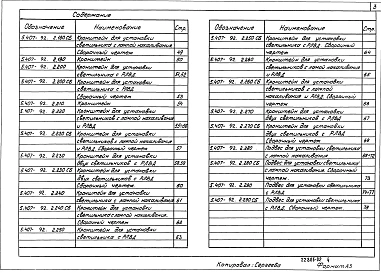 3
Содержание
Обозначение Наименование Стр.
5.407-92. 2.180СБ Кронштейн для установки
светильника с лампой накаливания.
Сборочный чертеж 49
5.407-92. 2.190 Кронштейн 50
5.407-92. 2.200 Кронштейн для установки
светильника с РЛВД 51,52
5.407-92. 2.200СБ Кронштейн для установки
светильника с РЛВД.
Сборочный чертеж 53
5.407-92. 2.210 Кронштейн 54
5.407-92. 2.220 Кронштейн для установки
светильников с лампой накаливания
и РЛВД
5.407-92. 2.220СБ Кронштейн для установки
светильников с лампой накаливания
и РЛВД. Сборочный чертеж 57
5.407-92. 2.230 Кронштейн для установки
двух светильников с РЛВД 58,59
5.407-92. 2.230СБ Кронштейн для установки
двух светильников с РЛВД.
Сборочный чертеж 60
5.407-92. 2.240 Кронштейн для установки
светильника с лампой накаливания 61
5.407-92. 2.240СБ Кронштейн для установки
светильника с лампой накаливания.
Сборочный чертеж 62
5.407-92. 2.250 Кронштейн для установки
светильника с РЛВД 63
Обозначение Наименование Стр.
5.407-92. 2.250СБ Кронштейн для установки
светильника с РЛВД. Сборочный
чертеж 64
5.407-92. 2.260 Кронштейн для установки
светильников с лампой накаливания
и РЛВД 65
5.407-92. 2.260СБ Кронштейн для установки
светильников с лампой
накаливания и РЛВД. Сборочный
чертеж 66
5.407-92. 2.270 Кронштейн для установки
двух светильников с РЛВД 67
5.407-92. 2.270СБ Кронштейн для установки
двух светильников с РЛВД.
Сборочный чертеж 68
5.407-92. 2.280 Подвес для установки светильника
с лампой накаливания
5.407-92. 2.280СБ Подвес для установки светильника
с лампой накаливания. Сборочный
чертеж 73
5.407-92. 2.290 Подвес для установки светильника
с РЛВД 74-77
5.407-92. 2.290СБ Подвес для установки светильника
с РЛВД. Сборочный чертеж 78
Копировал: Сергеева Формат А3